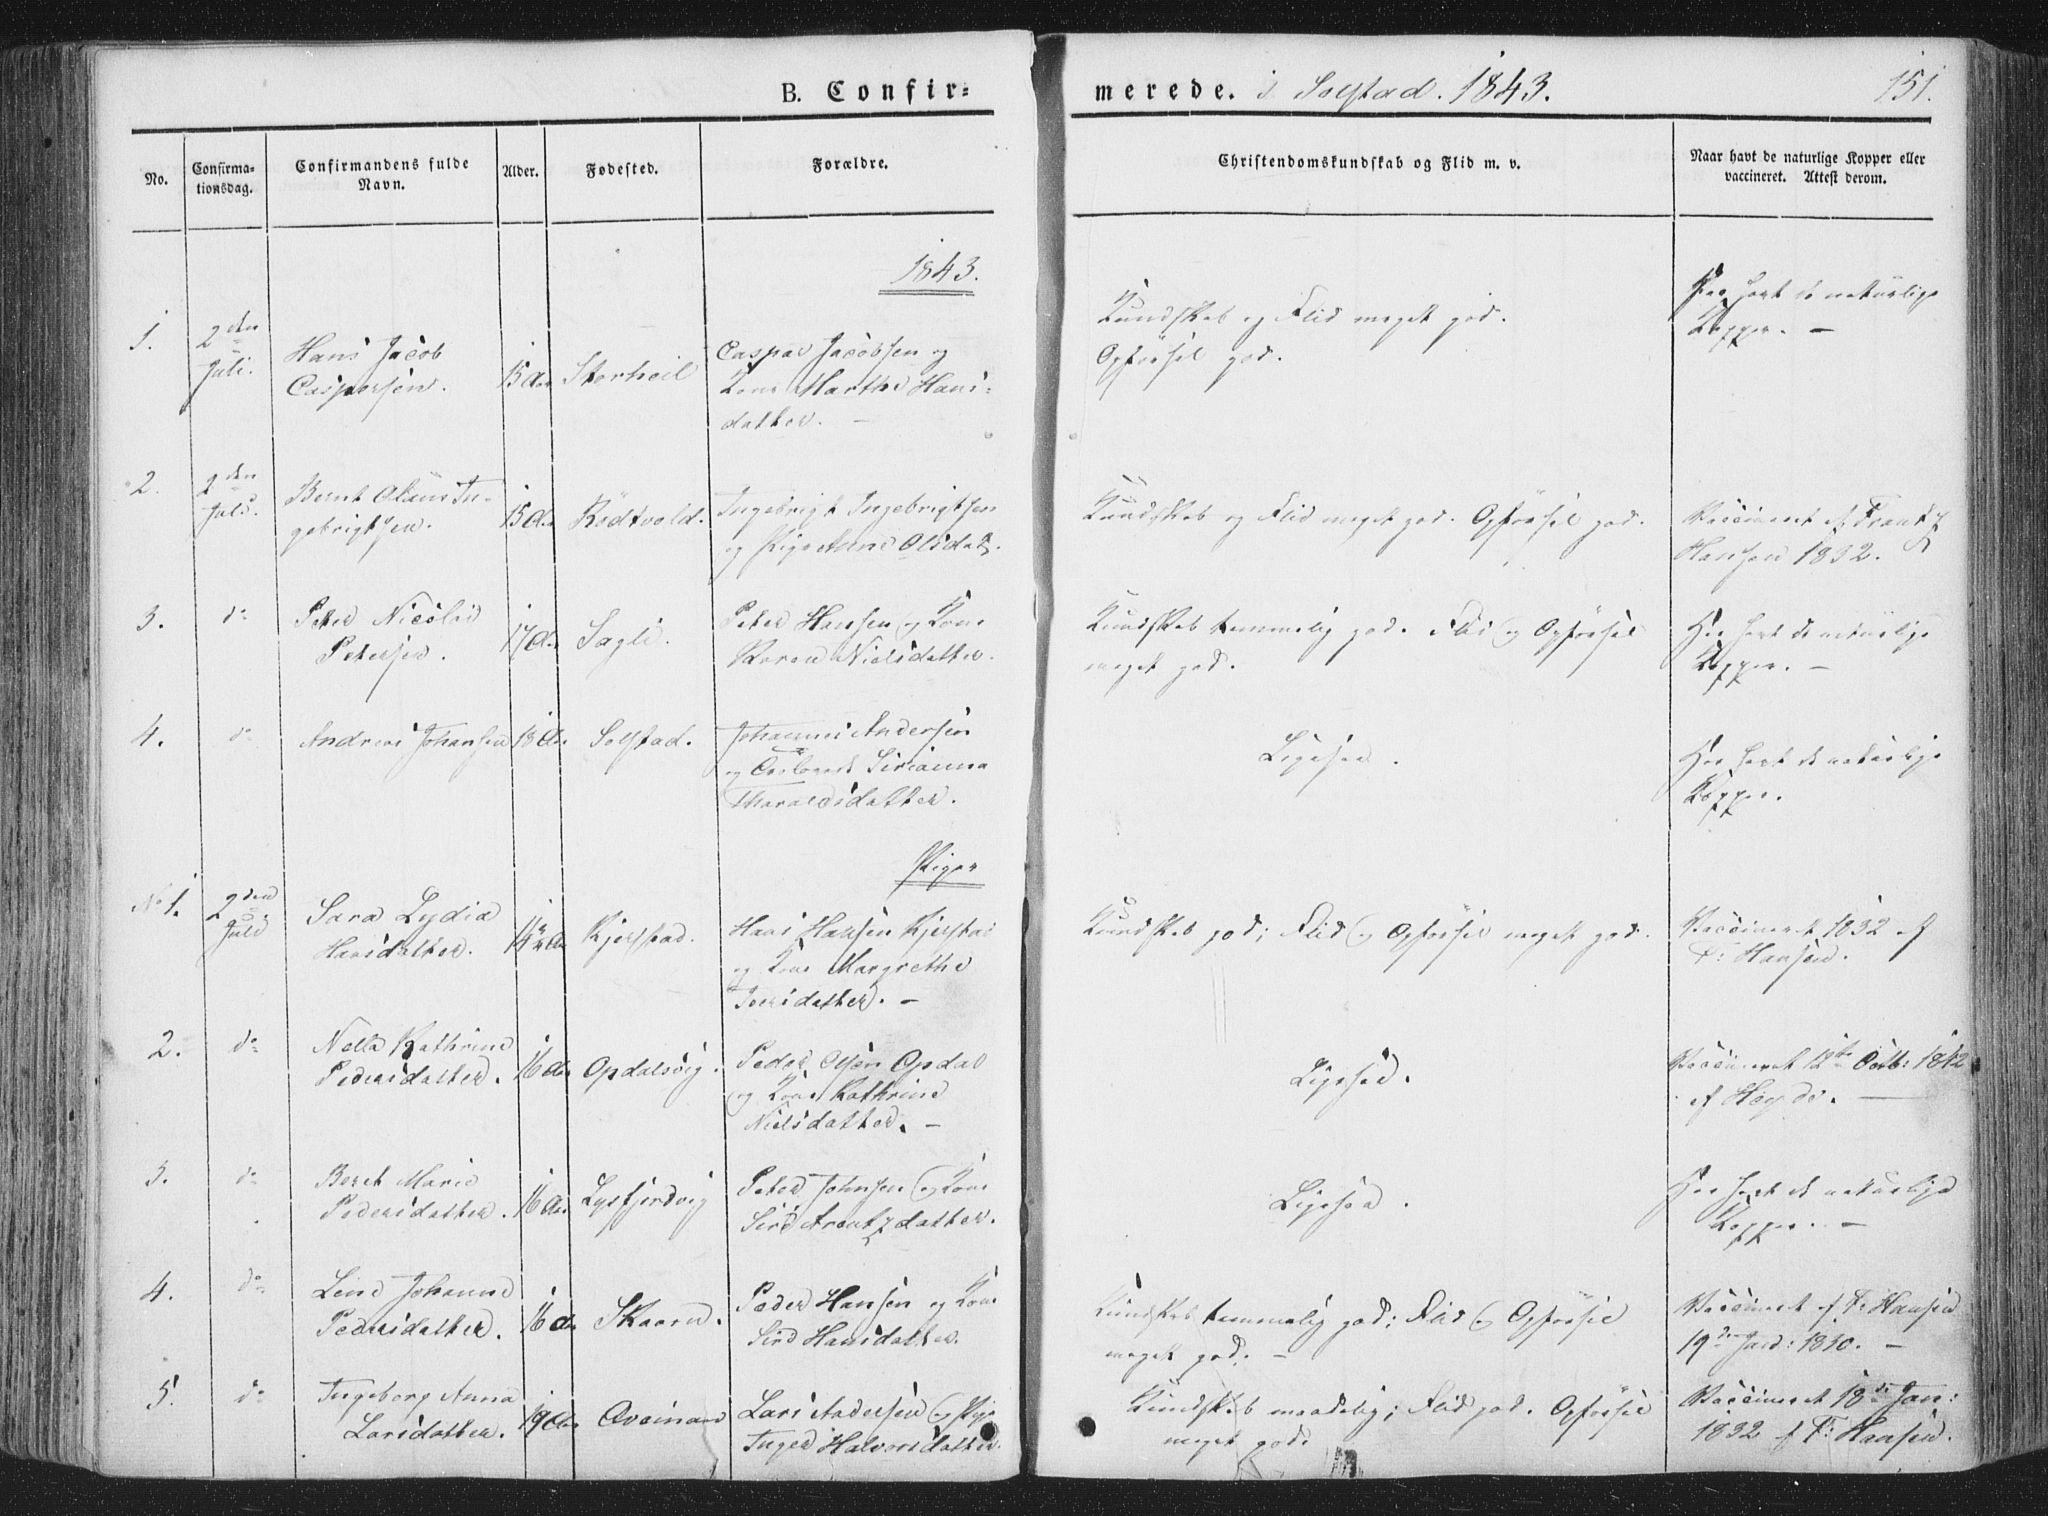 B. Confir- merede. i Solstad. 1843. 151.
No.
Confirma-
tionsdag.
Confirmandens fulde
Navn.
Alder.
Fødested.
Forældre.
Christendomskundskab og Flid m. v.
Naar havt de naturlige Kopper eller
vaccineret. Attest derom.
1843.
1.
2den
Juli.
Hans Jacob
Caspersen.
15 Aar
Storheil
Caspar Jacobsen og
Kone Marthe Hans-
datter. —
Kundskab og Flid meget god.
Opførsel god.
Har havt de naturlige
Kopper. —
2.
2den
Juli.
Bernt Olaus In-
gebrigtsen.
15 Aar
Rödtvold.
Ingebrigt Ingebrigtsen
og Pige Anne Olsdatr.
Kundskab og Flid meget god. Opførsel god.
Vaccineret af Frantz
Hansen 1832.
3.
do
Peter Nicolai
Petersen.
17 Aar
Sagli.
Peter Hansen og Kone
Karen Nielsdatter.
Kundskab temmelig god. Flid og Opførsel
meget god.
Har havt de naturlige
Kopper. —
4.
do
Andreas Johansen
18 Aar
Solstad.
Johannes Andersen
og Sirianna
Tharaldsdatter.
Ligesaa.
Har havt de naturlige
Kopper.
Piger
No 1.
2den
Juli
Sara Lydia
Hansdatter.
Kjerstad.
Hans Hansen Kjerstad
og Kone Margrethe
Iversdatter. —
Kundskab god; Flid og Opførsel meget god.
Vaccineret 1832 af
F: Hansen.
2.
do
Nella Kathrine
Pedersdatter.
16 Aar
Opdalsvig.
Peder Olsen Opdal
og Kone Kathrine
Nielsdatter. —
Ligesaa.
Vaccineret 12te Octb: 1842
af Heyde. —
3.
do
Beret Marie
Pedersdatter.
16 Aar
Lysfjordvig
Peter Johnsen og Kone
Siri Arentzdatter.
Ligesaa.
Har havt de naturlige
Kopper. —
4.
do
Line Johanne
Pedersdatter.
16 Aar
Skaaren.
Peder Hansen og Kone
Siri Hansdatter.
Kundskab temmelig god; Flid og Opførsel
meget god. —
Vaccineret af F: Hansen
19de 1830. —
5.
do
Ingeborg Anna
Larsdatter.
19 Aar
Lars Andersen og Pige
Inger Halvorsdatter.
Kundskab maadelig; Flid god. Opførsel
meget god.
Vaccineret 18de Jan:
1832 af F: Hansen.